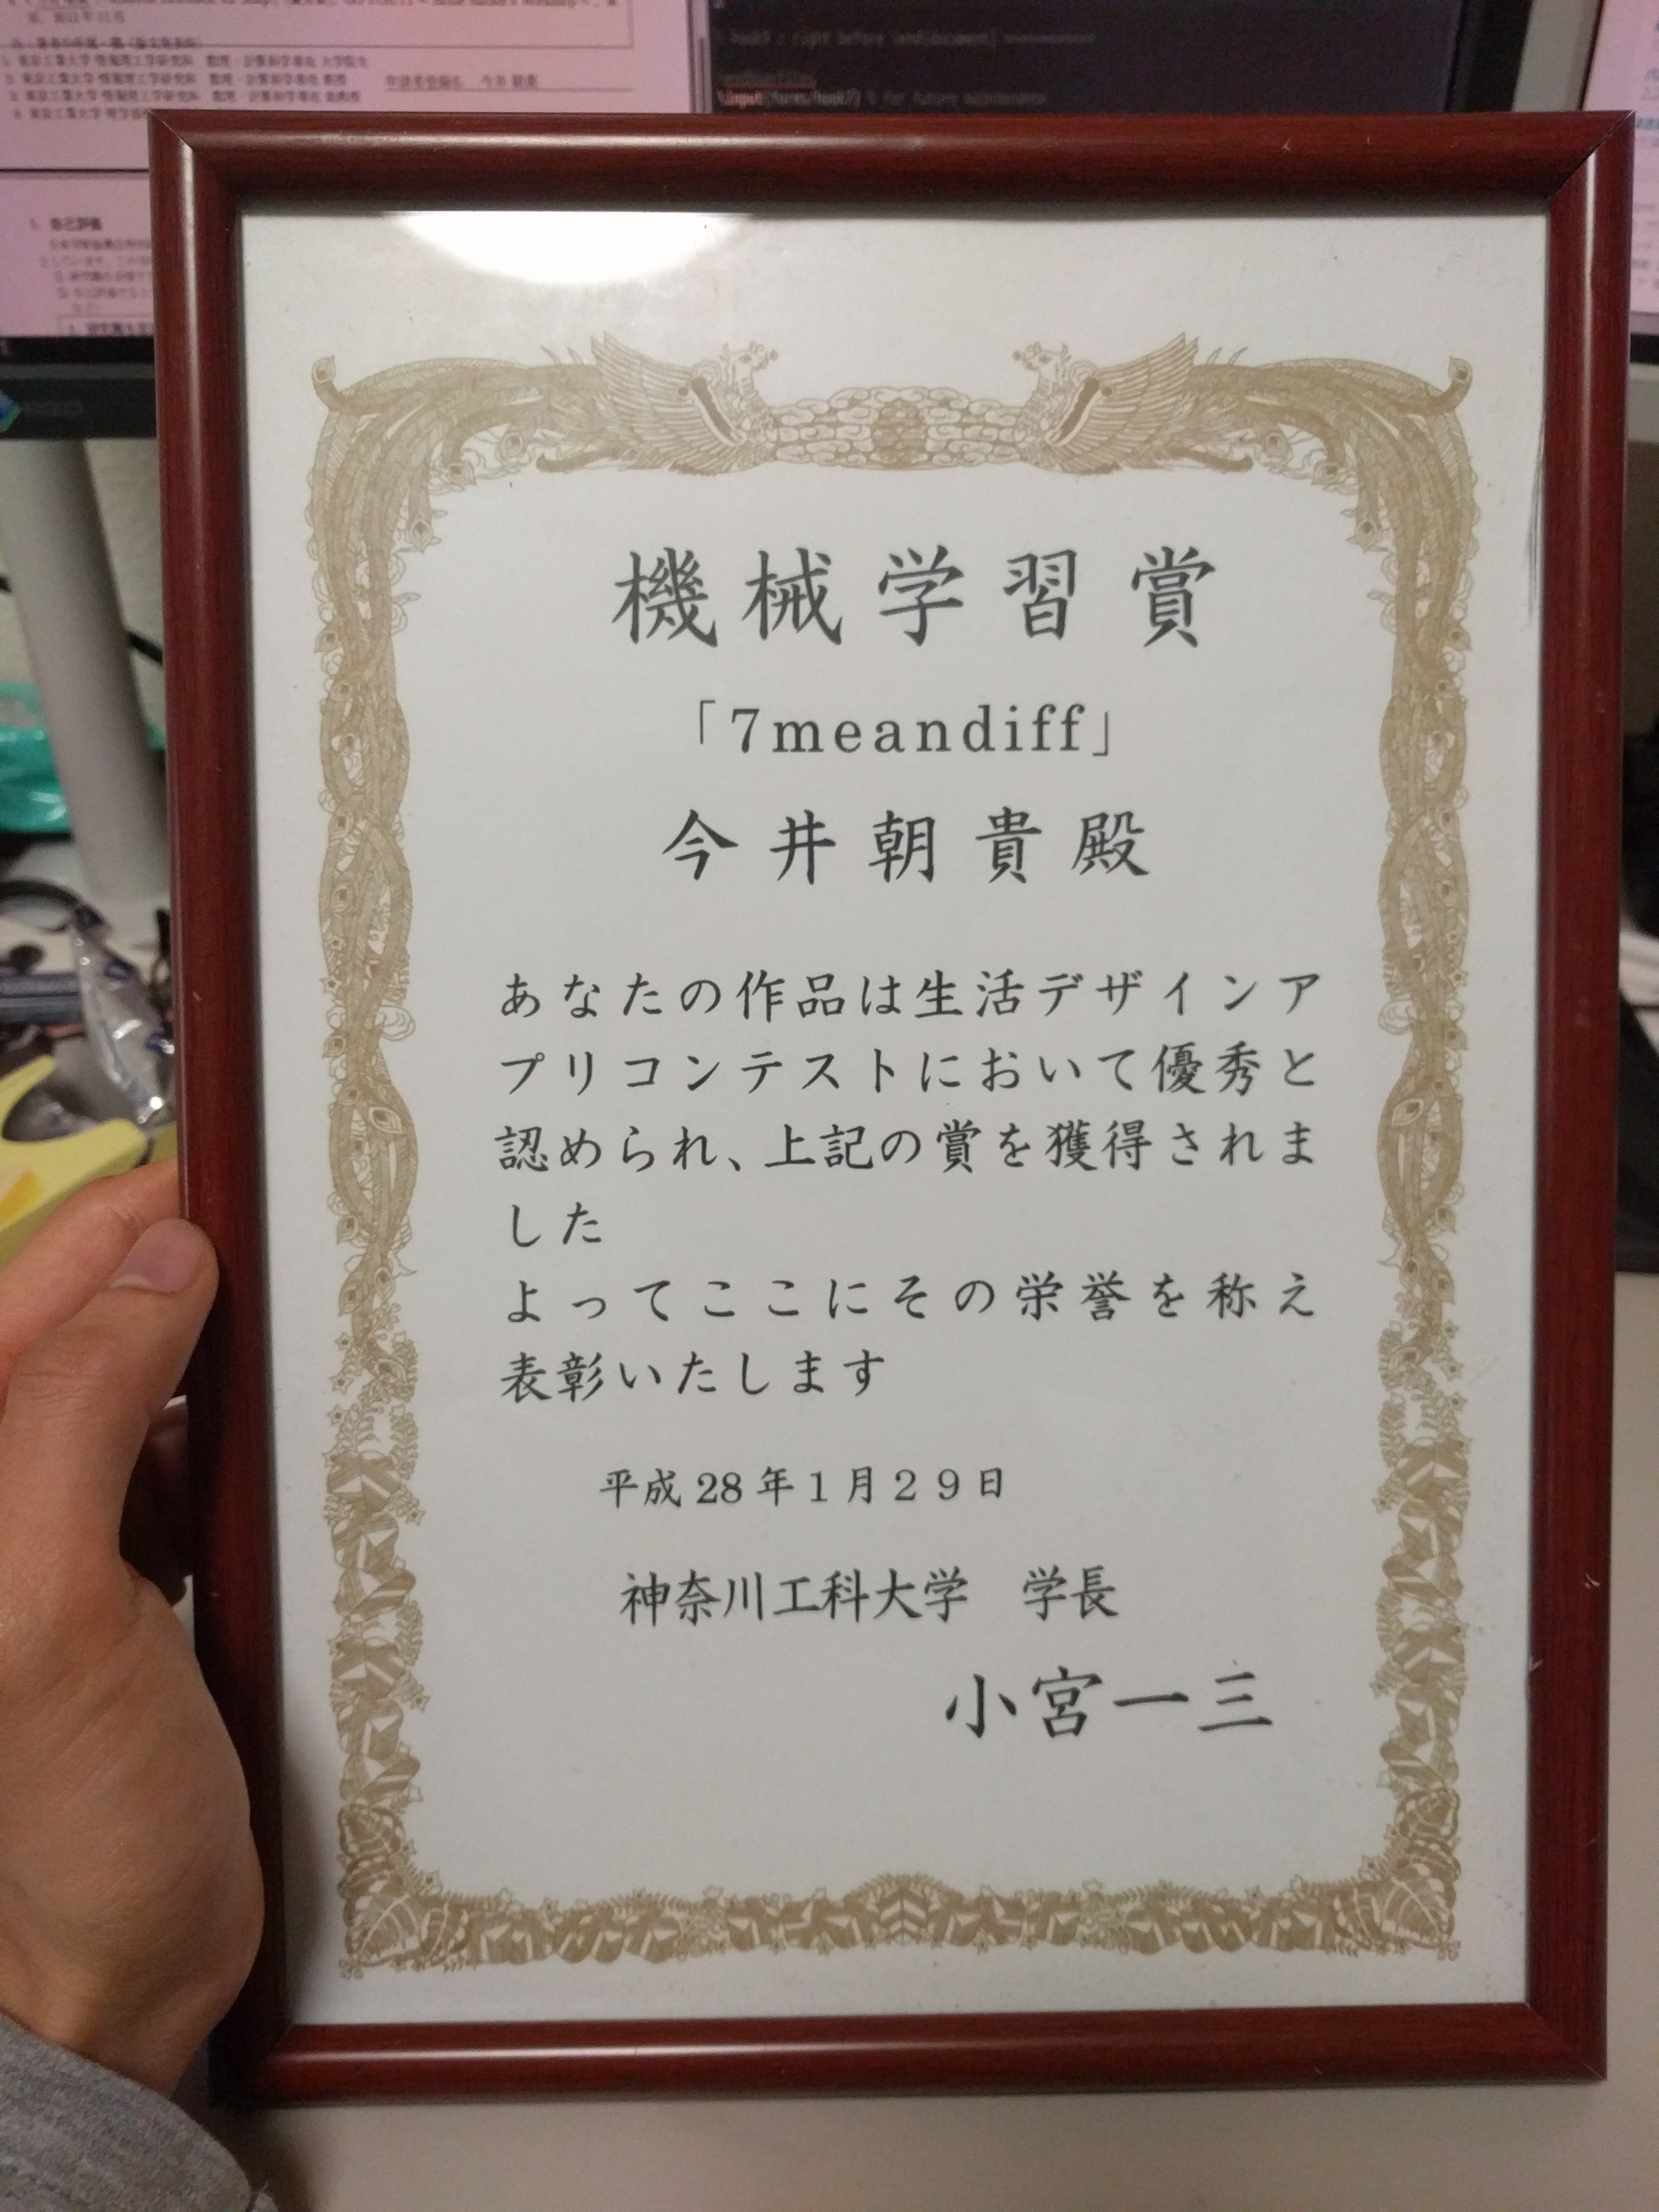 東京工業大学 情報理工学研究科 数理・計算科学専攻 大学院生
機械学習賞
「7meandiff」
今井朝貴殿
あなたの作品は生活デザインア
プリコンテストにおいて優秀と
認められ、上記の賞を獲得されま
した
よってここにその栄誉を称え
表彰いたします
平成28年1月29日
神奈川工科大学 学長
小宮一三